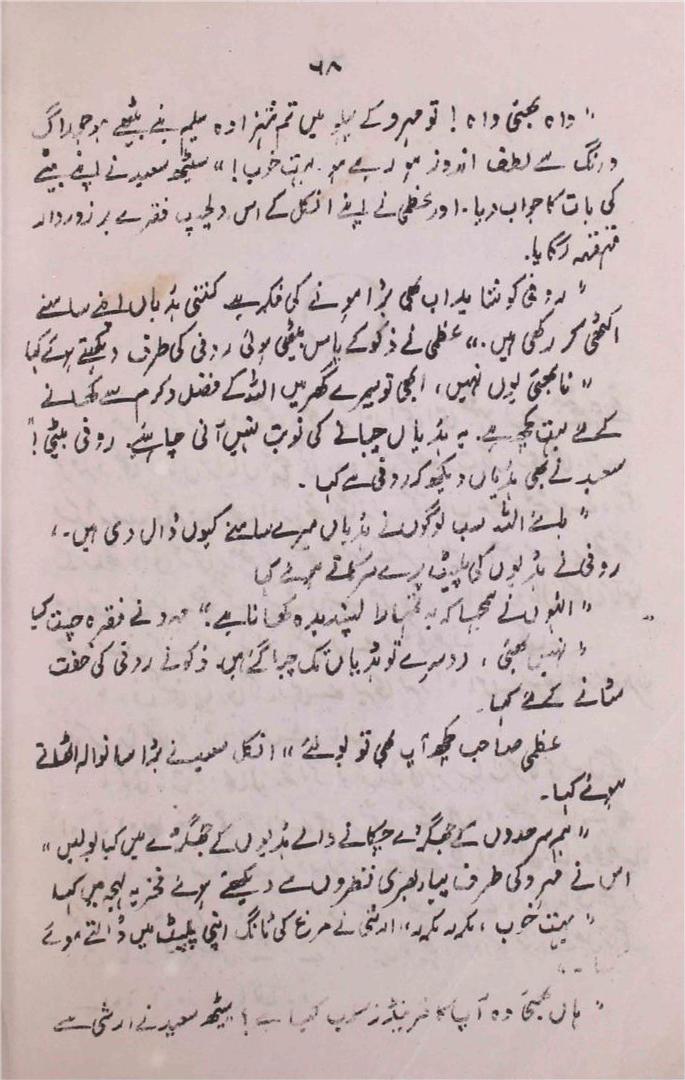 ۶۸
" واہ بھئی واہ ! تو مہرو کے پہلو میں تم شہزادہ سلیم بنے بیٹھے ہو جو راگ
و رنگ سے لطف اندوز ہو رہے ہو بہت خوب ! " سیٹھ سعید نے اپنے بیٹے
کی بات کا جواب دیا۔ اور عظمی نے اپنے انکل کے اس دلچسپ فقرے پر زوردار
قہقہہ لگایا۔
" روفی کو شاید اب بھی بڑا ہونے کی فکر ہے کتنی ہڈیاں اپنے سامنے
اکٹھی کر رکھی ہیں ۔" عظمی نے ذکو کے پاس بیٹھی ہوئی روفی کی طرف دیکھتے ہوئے کہا
" نا بھئی یوں نہیں ، ابھی تو میرے گھر میں اللہ کے فضل و کرم سے کھانے
کے لئے بہت کچھ ہے۔ یہ ہڈیاں چبانے کی نوبت نہیں آنی چاہئیے۔ روفی بیٹی !"
سعید نے بھی ہڈیاں دیکھ کر روفی سے کہا ۔
" ہائے اللہ سب لوگوں نے ہڈیاں میرے سامنے کیوں ڈال دی ہیں ۔،
روفی نے ہڈیوں کی پلیٹ پرے سرکاتے ہوئے کہا
" انہوں نے سمجھا کہ یہ تمہارا پسندیدہ کھانا ہے۔" مہرو نے فقرہ چست کیا
" نہیں بھئی ، دوسرے تو ہڈیاں تک چبا گئے ہیں۔ ذکو نے روفی کی خفت
مٹانے کے لئے کہا۔
عظمی صاحب کچھ آپ بھی تو بولئے " انکل سعید نے بڑا سا نوالہ اٹھاتے
ہوئے کہا ۔
" ہم سرحدوں کے جھگڑے چکانے والے ہڈیوں کے جھگڑے میں کیا بولیں "
اس نے مہرو کی طرف پیار بھری نظروں سے دیکھتے ہوئے فخریہ لہجہ میں کہا
" بہت خوب ، مکرر مکرر،، ارشی نے مرغ کی ٹانگ اپنی پلیٹ میں ڈالتے ہوئے
" ہاں بھئی وہ آپ کا فرینڈز کلب کیسا ہے ؟ سیٹھ سعید نے ارشی سے